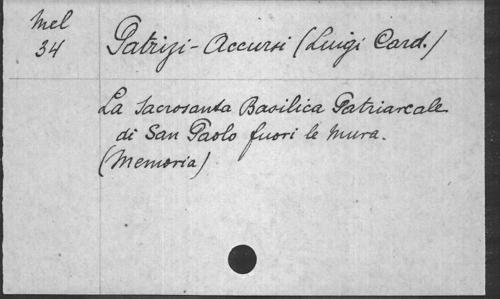 Mel
34
Patrizi-Accursi (Luigi Card.)
La Sacrosanta Basilica Patriarcale
di San Paolo fuori le mura.
(Memoria)